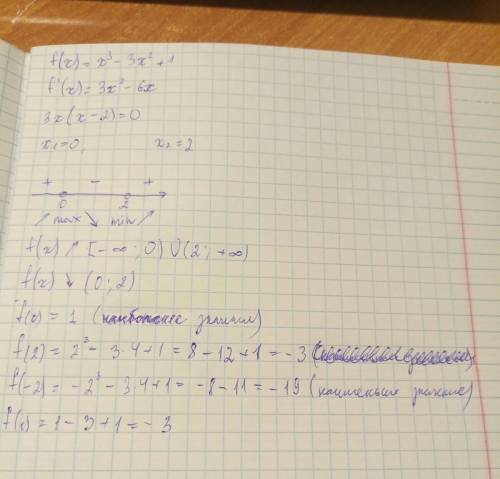 f(x) = x³ - 3x² + 1
f'(x) = 3x² - 6x
3x(x - 2) = 0
x₁ = 0, x₂ = 2
+ - +
0 2
↗ max ↘ min ↗
f(x) ↗ [-∞; 0) ∪ (2; +∞)
f(x) ↓ (0; 2)
f(0) = 1 (наибольшее значение)
f(2) = 2³ - 3·4 + 1 = 8 - 12 + 1 = -3
f(-2) = -2³ - 3·4 + 1 = -8 - 11 = -19 (наименьше значение)
f(1) = 1 - 3 + 1 = -3